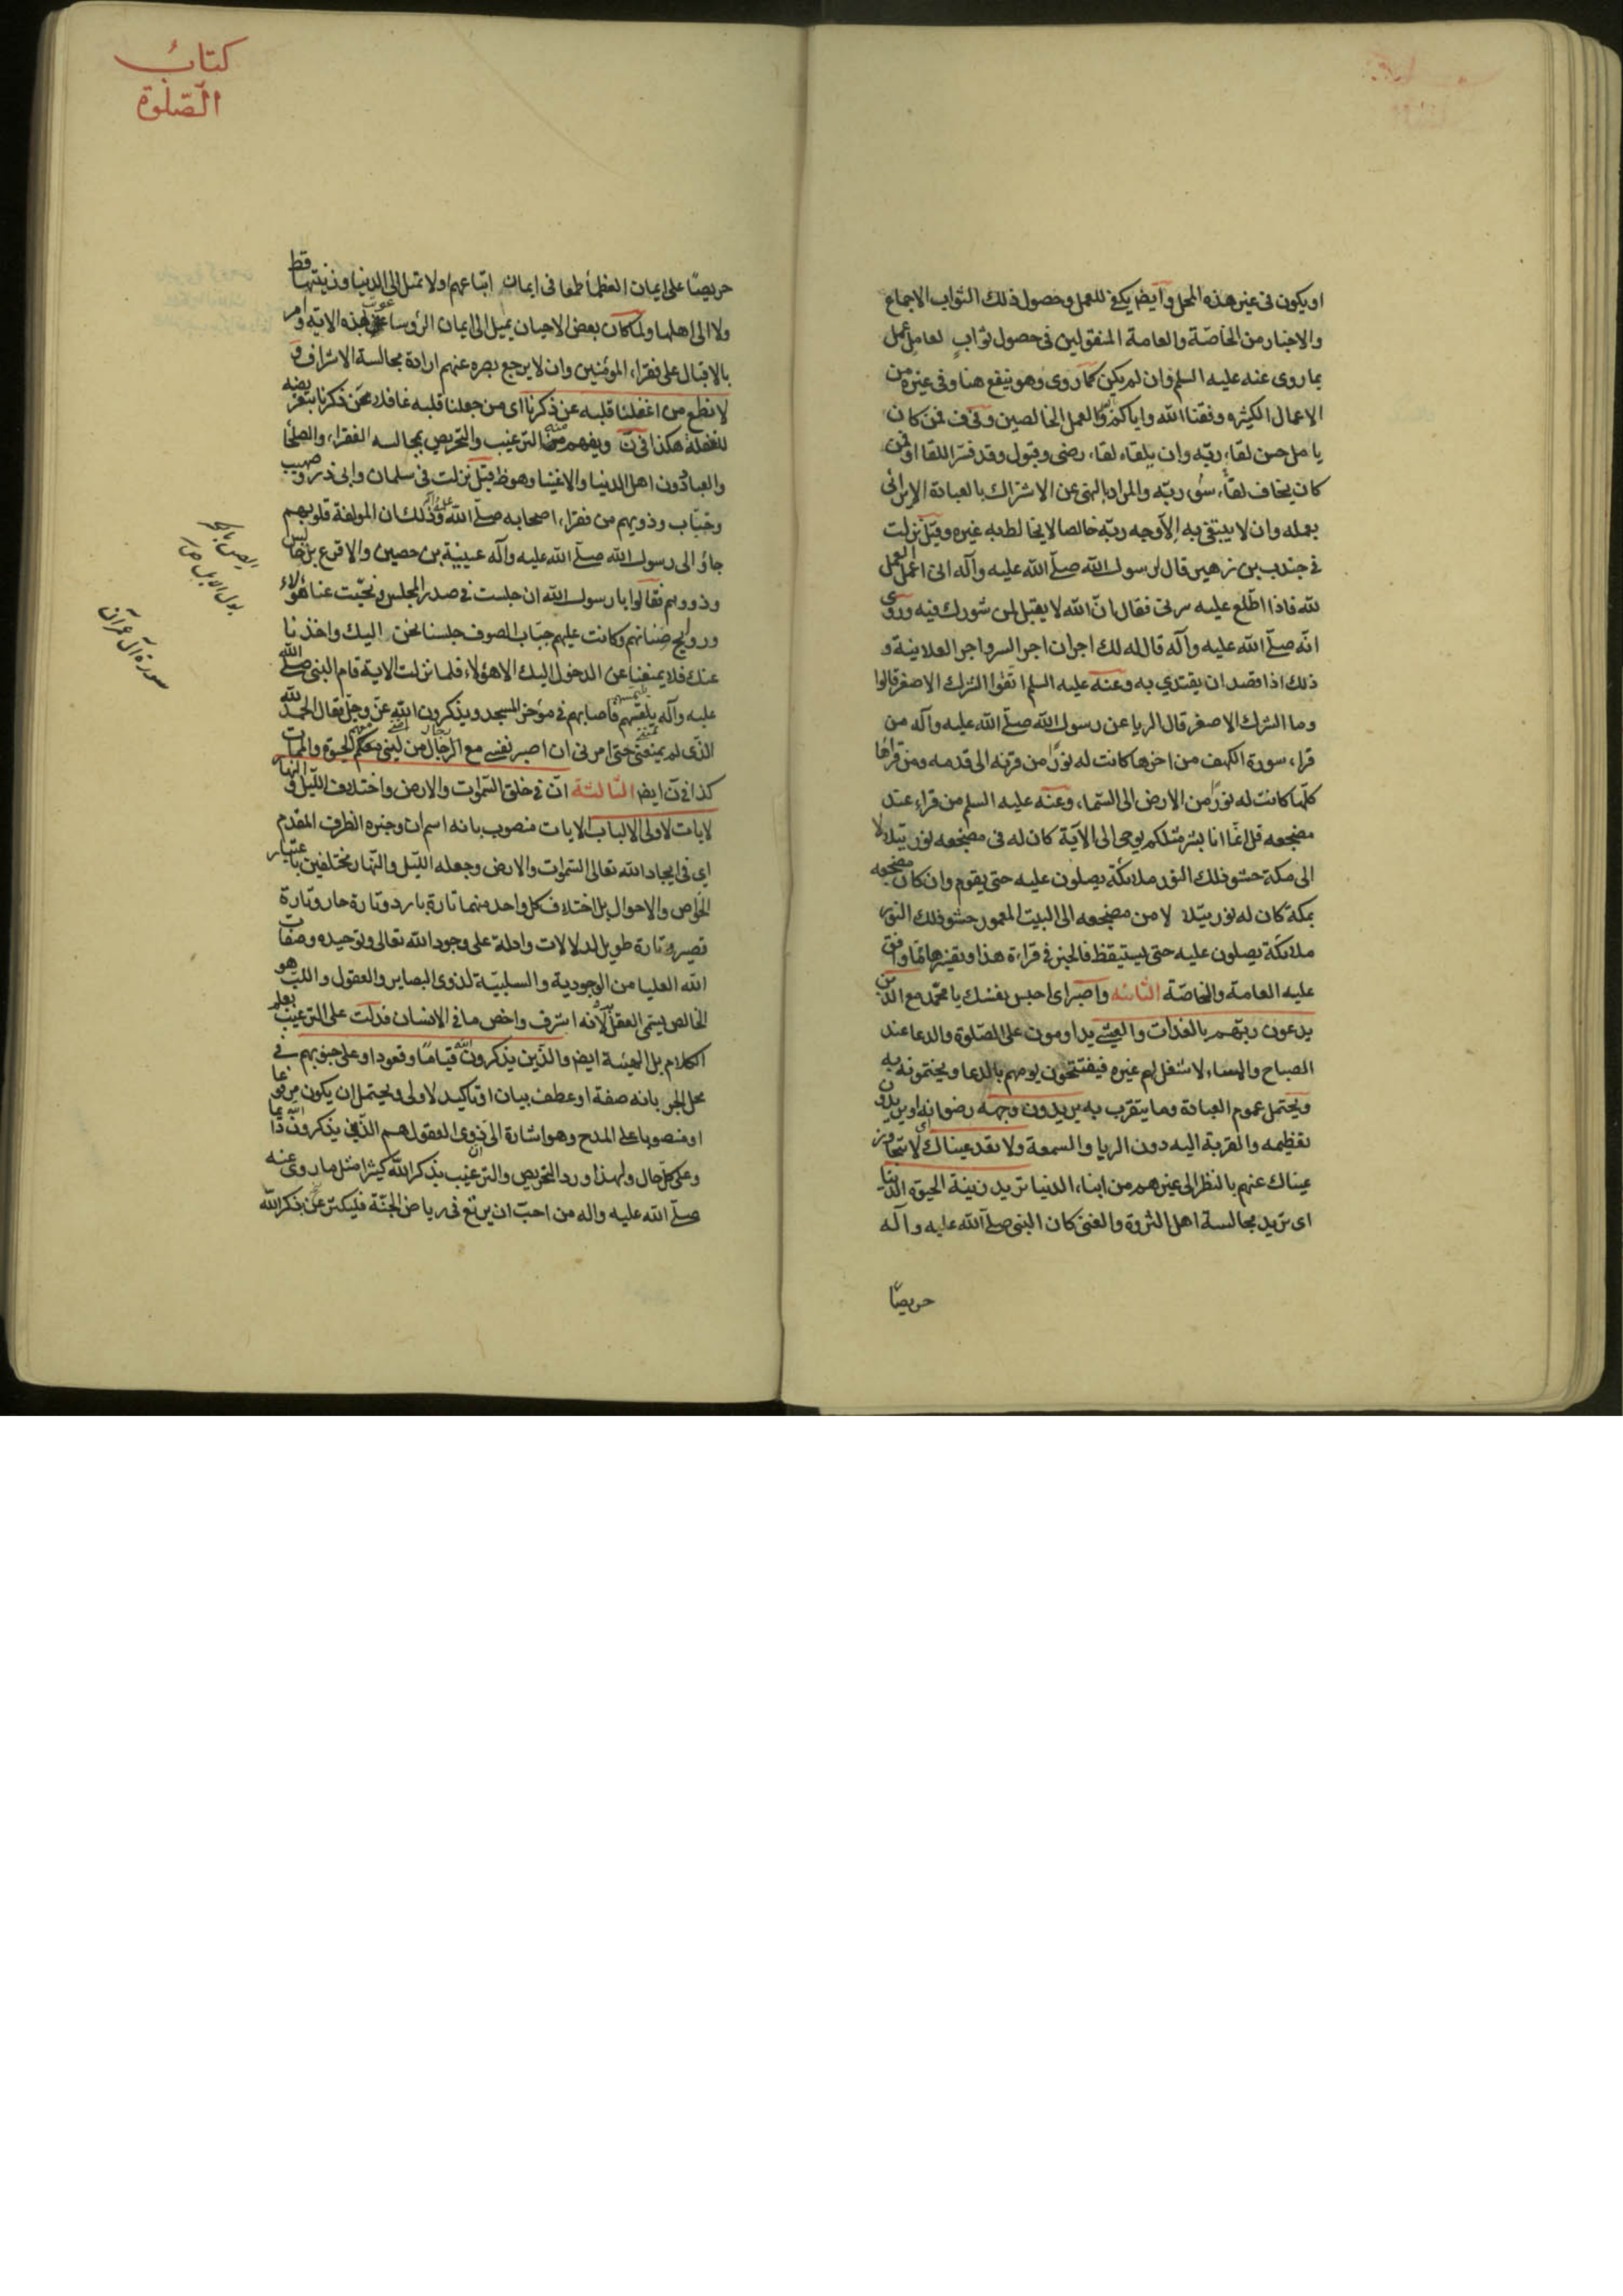 او يكون فى غير هذه المحل وايض يكفى للعمل وحصول ذلك الثواب الاجماع
والاخبار من الخاصّة والعامة المنقولين فى حصول ثوابٍ لعامل عمل
بما روى عنه عليه السلم وان لم يكن كما روى وهو ينفع هنا وفى غيره من
الاعمال الكثيره وفقنا الله واياكم والعمل الخالصين وفى ف فمن كان
يامل حسن لقاء ربّه وان يلقاه لقاء رضى وقبول وقد فسّر اللقا او فمن
كان يخاف لقاء سُوء ربّه والمراد بالنهى عن الاشراك بالعبادة الا يرائى
بعمله وان لا يبتغى به الا وجه ربّه خالصا لا يخالط به غيره وقيل نزلت
فى جندب بن زهير قال لرسول الله صلّى الله عليه وآله انى اعمل العمل
لله فاذا اطّلع عليه سرنى فقال انّ الله لا يقبل لمن شورك فيه وروى
انّه صلّى الله عليه وآله قال له لك اجران اجر السر واجر العلانية و
ذلك اذا قصد ان يقتدى به وعنه عليه السلم اتقوا الشرك الاصغر قالوا
وما الشرك الاصغر قال الريا عن رسول الله صلّى الله عليه وآله من
قراء سورة الكهف من اخرها كانت له نورًا من قرنه الى قدمه ومن قراها
كلّها كانت له نورًا من الارض الى السّماء وعنه عليه السلم من قراء عند
مضجعه قل انّما انا بشر مثلكم يوحى الى الآية كان له فى مضجعه نور يتلالا
الى مكة حشو ذلك النور ملائكة يصلون عليه حتى يقوم وان كان مضجعه
بمكة كان له نور يتلا لا من مضجعه الى البيت المعمور حشو ذلك النور
ملائكة يصلون عليه حتى يستيقظ فالخبر فى قراءة هذا وتغيرها مما وافق
عليه العامة والخاصّة الثّانيه واصبر اى احبس نفسك يا محمّد مع الذين
يدعون ربّهم بالغداة والعشى يداومون على الصّلوة والدعا عند
الصباح والمساء لا شغل لهم غيره فيفتتحون يومهم بالدعا ويختمونه به
ويحتمل عموم العبادة وما يتقرّب به يريدون وجهه رضوانه او يريدون
تعظيمه والقربة اليه دون الريا والسمعة ولا تعد عيناك اى لا تتجاوز
عيناك عنهم بالنظر الى غيرهم من ابناء الدنيا تريد زينة الحيوة الدّنيا
اى تريد مجالسة اهل الثروة والغنى كان النبى صلّى الله عليه وآله
حريصًا
كتاب
الصّلوة
حريصًا على ايمان العظماء طمعا فى ايمان اتباعهم ولا تميل الى الدنيا وزينتها قط
ولا الى اهلها ولما كان بعض الاحيان يميل الى ايمان الرؤسا عوتب بهذه الاية وامر
بالاقبال على فقراء المومنين وان لا يرجع بصره عنهم ارادة مجالسة الاشراف و
لا تطع من اغفلنا قلبه عن ذكرنا اى من جعلنا قلبه غافلا عن ذكرنا بتعريضه
للغفلة هكذا فى ن ويفهم منه الترغيب والتحريص بمجالسه الفقراء والصلحا
والعباد دون اهل الدنيا والاغنيا وهو ظ قيل نزلت فى سلمان وابى ذر وصهيب
وخبّاب وذويهم من فقراء اصحابه صلّى الله عليه وآله وذلك ان المولفة قلوبهم
جاؤ الى رسول الله صلّى الله عليه وآله عيينة بن حصين والاقرع بن حابس
وذووهم فقالوا يا رسول الله ان جلست فى صدر المجلس ونحّيت عنا هؤلاء
وروايح صنانهم وكانت عليهم جباب الصوف جلسنا نحن اليك واخذنا
عنك فلا يمنعنا عن الدخول اليك الا هؤلاء فلما نزلت الاية قام النبى صلّى الله
عليه وآله يلتمسهم فاصابهم فى مؤخر المسجد ويذكرون الله عزّ وجلّ فقال الحمد لله
الذى لم يمتنى حتى امرنى ان اصبر نفسى مع الرجال من امتى معكم الحيوة والممات
كذا فى ن ايض الثّالثة انّ فى خلق السّموات والارض واختلاف اللّيل والنهار
لايات لاولى الالباب الايات منصوب بانه اسم ان وخبره الظرف المقدم
اى فى ايجاد الله تعالى السّموات والارض وجعله اللّيل والنّهار مختلفين باعتبار
الخواص والاحوال بل اختلاف كل واحد منهما تارة بارد وتارة حار وتارة
قصير وتارة طويل لدلالات وادلة على وجود الله تعالى وتوحيده وصفات
الله العليا من الوجودية والسلبيّة لذوى البصاير والعقول واللب هو
الخالص يسمى العقل به لانه اشرف واخص ما فى الانسان فدلت على الترغيب بعلم
الكلام بل الهيئة ايض والذّين يذكرون الله قيامًا وقعودا وعلى جنوبهم فى
محل الجر بانه صفة او عطف بيان او تاكيد لاولى ويحتمل ان يكون مرفوعا
او منصوبا على المدح وهو اشارة الى ان ذوى العقول هم الذّين يذكرون الله دائما
وعلى كلّ حال ولهذا ورد التحريص والترغيب بذكر الله كثيرا مثل ما روى عنه
صلّى الله عليه واله من احبّ ان يرتع فى رياض الجنّة فليكثر من ذكر الله
سورة آل عمران